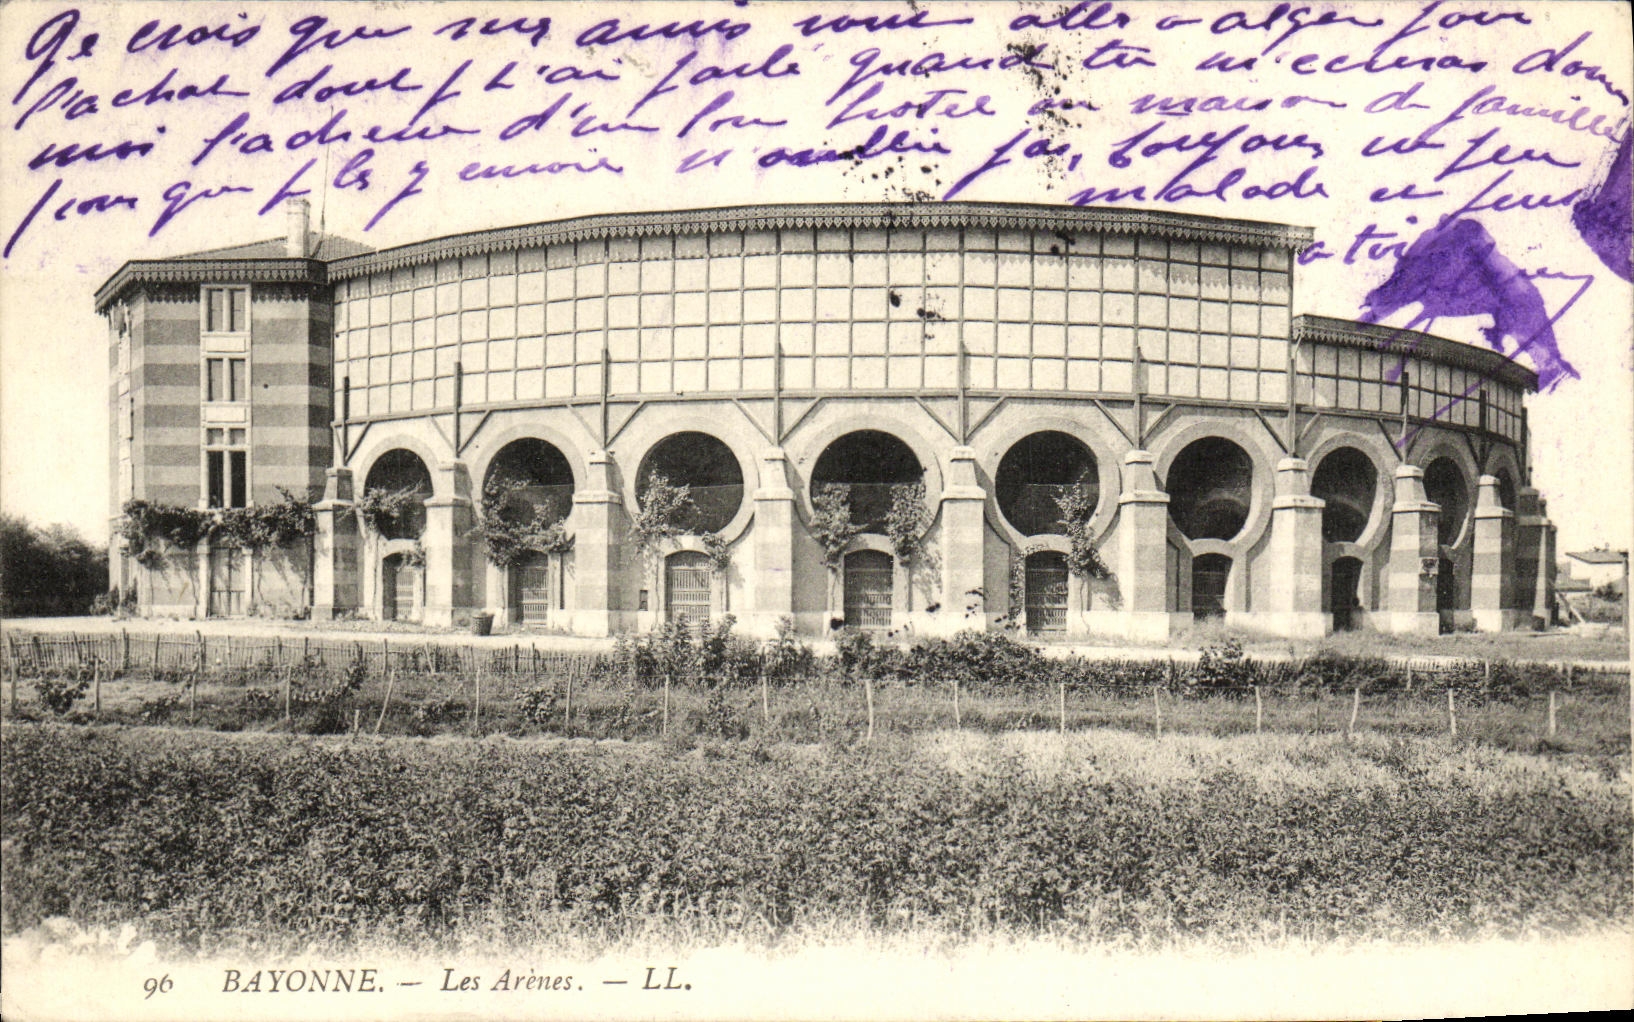 Je crois que nos amis sont allé a alger pour
l'achat dont je t'ai parlé quand tu m'ecriras donne
moi l'adresse d'un bon hotel ou maison de famille
pour que je les y envoie n'oublie pas, toujours un peu
malade et
a toi
96 BAYONNE. — Les Arènes. — LL.